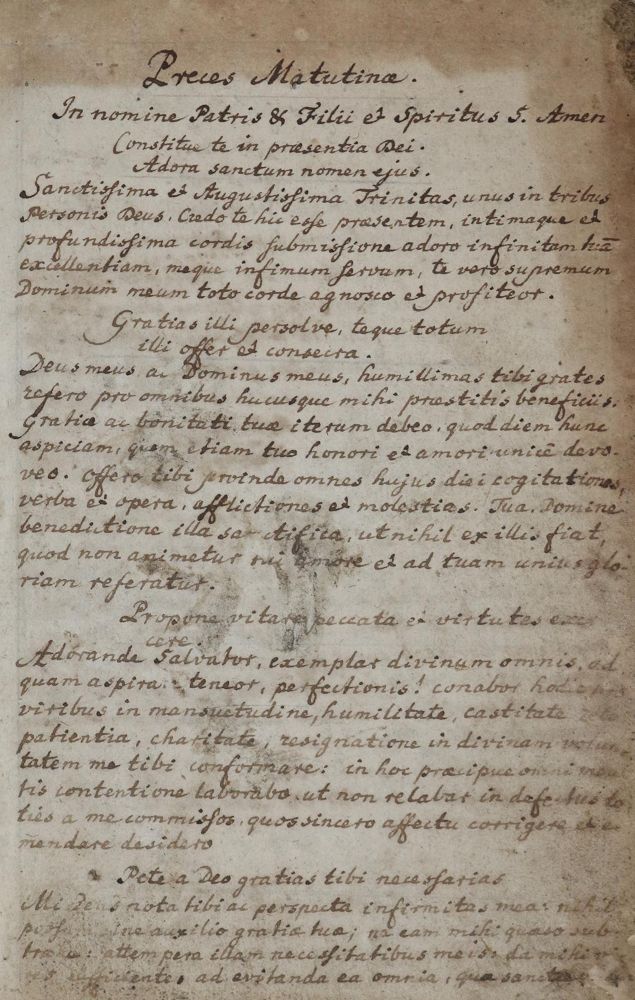 Preces Matutinæ.
In nomine Patris & Filii et Spiritus S. Amen
Constitue te in præsentia Dei.
Adora sanctum nomen ejus.
Sanctissima et Augustissima Trinitas, unus in tribus
Personis Deus. Credo te hic esse præsentem, intimaque et
profundissima cordis submissione adoro infinitam tuã
excellentiam, meque infimum servum, te vero supremum
Dominum meum toto corde agnosco et profiteor.
Gratias illi persolve, teque totum
illi offer et consecra.
Deus meus ac Dominus meus, humillimas tibi grates
refero pro omnibus hucusque mihi præstitis beneficiis.
Gratiæ ac bonitati tuæ iterum debeo, quod diem hunc
aspiciam, quem etiam tuo honori et amori unicè devo-
veo. Offero tibi proinde omnes hujus diei cogitationes,
verba et opera, afflictiones et molestias. Tua Domine
benedictione illa sanctifica, ut nihil ex illis fiat,
quod non animetur tui amore et ad tuam unius glo-
riam referatur.
Propone vitare peccata et virtutes exer
cere.
Adorande Salvator, exemplar divinum omnis, ad
quam aspirare teneor, perfectionis! conabor hodie
viribus in mansuetudine, humilitate, castitate
patientia, charitate, resignatione in divinam volun
tatem me tibi conformare: in hoc præcipue omni men
tis contentione laborabo, ut non relabar in defectus to
tiès a me commissos, quos sincero affectu corrigere et e
mendare desidero
Pete a Deo gratias tibi necessarias
Mi Deus nota tibi ac perspecta infirmitas mea: nihil
possum sine auxilio gratiæ tuæ; nè eam mihi quæso sub-
trahe: attempera illam necessitatibus meis: da mihi
sufficientes ad evitanda ea omnia, quæ